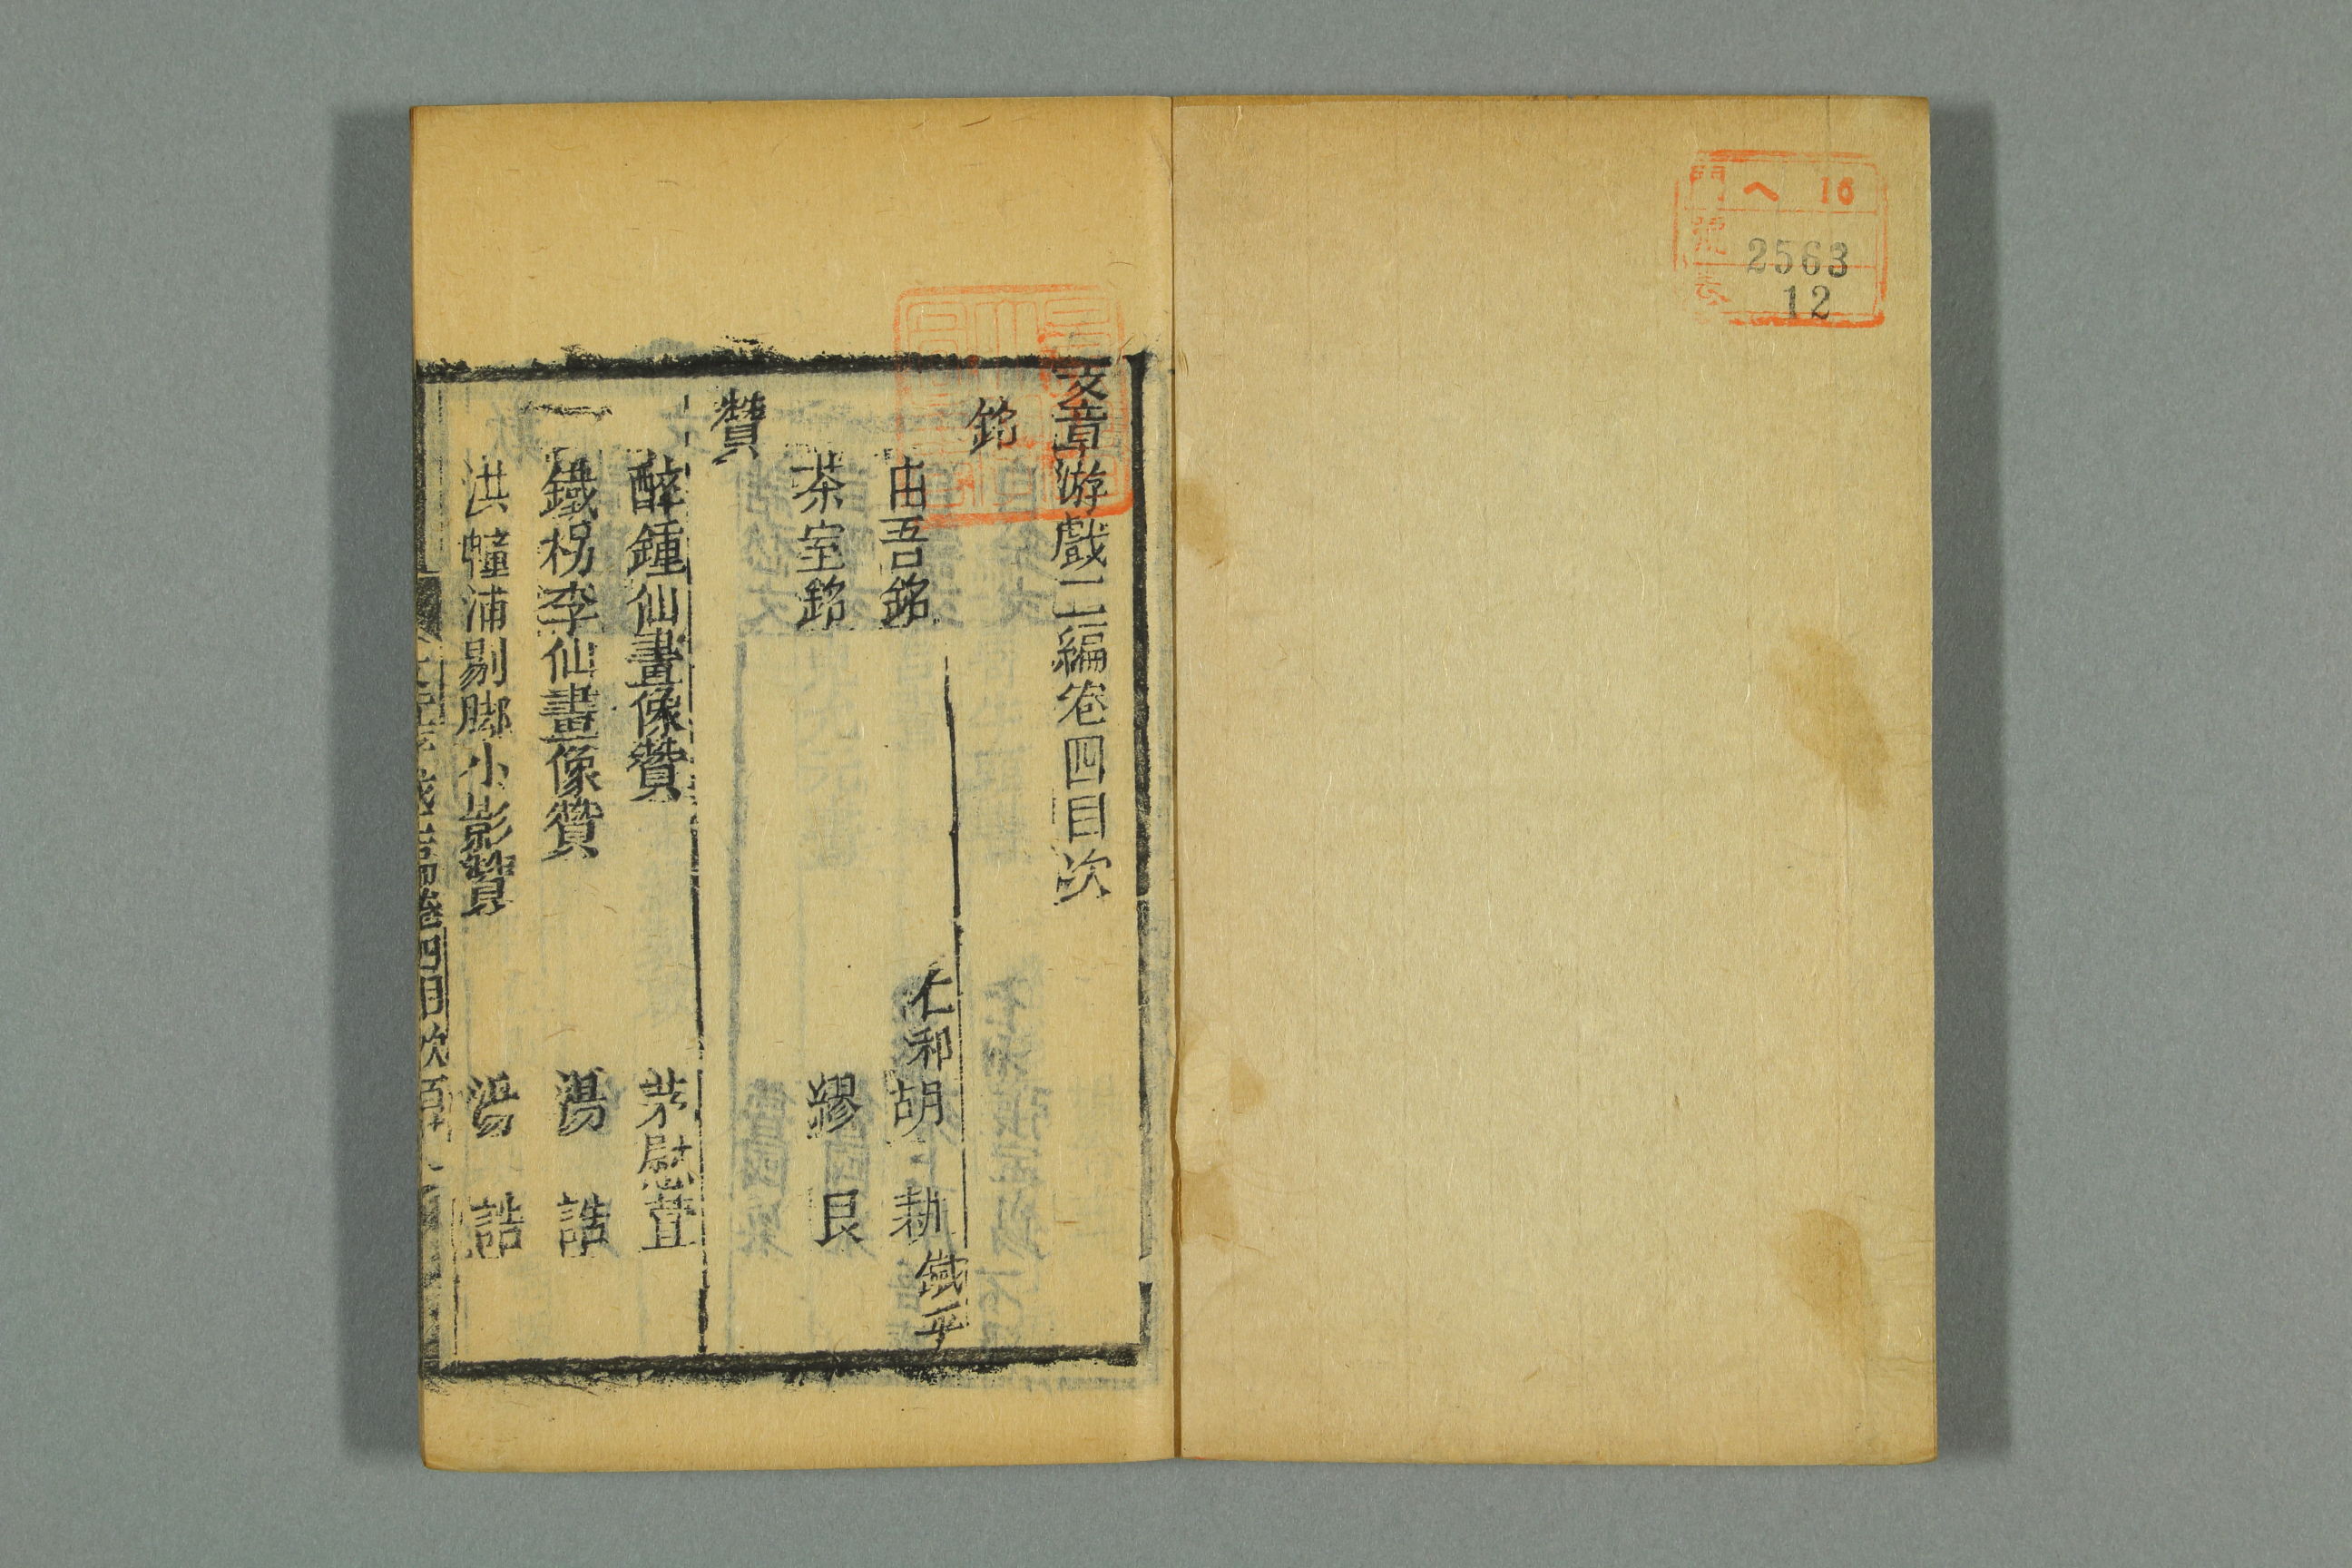 門 へ 16
號 2563
12
文章游戲二編卷四目次
銘
由吾銘 仁和 胡 勅
茶室銘 繆 艮
贊
醉鍾仙畫像贊 茅慰萱
鐵拐李仙畫像贊 湯 誥
洪幢浦剔脚小影贊 湯 誥
卷四目次